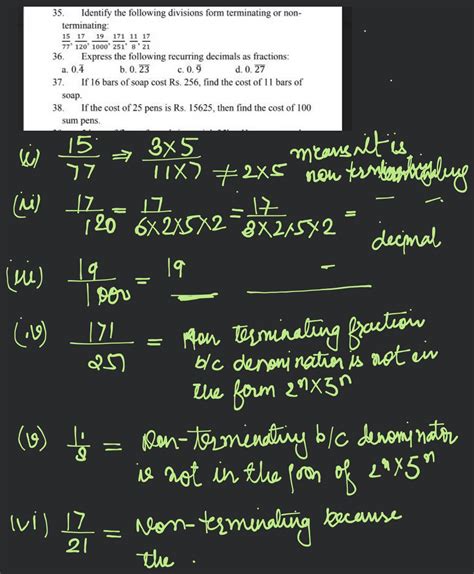 35. Identify the following divisions form terminating or non-
terminating:
15/77, 17/120, 19/1000, 171/251, 11/8, 17/21
36. Express the following recurring decimals as fractions:
a. 0.4̄ b. 0.2̄3̄ c. 0.9̄ d. 0.2̄7̄
37. If 16 bars of soap cost Rs. 256, find the cost of 11 bars of
soap.
38. If the cost of 25 pens is Rs. 15625, then find the cost of 100
sum pens.
15/77 ⇒ 3×5/11×7 ≠ 2×5 means it is
non
(ii) 17/120 = 17/6×2×5×2 = 17/3×2×5×2 =
decimal
(iii) 19/1000 = 19
(iv) 171/251 = Non terminating fraction
b/c denominator is not in
the form 2ⁿ×5ⁿ
(v) 11/8 = Non-terminating b/c denominator
is not in the form of 2ⁿ×5ⁿ
(vi) 17/21 = Non-terminating because
the .